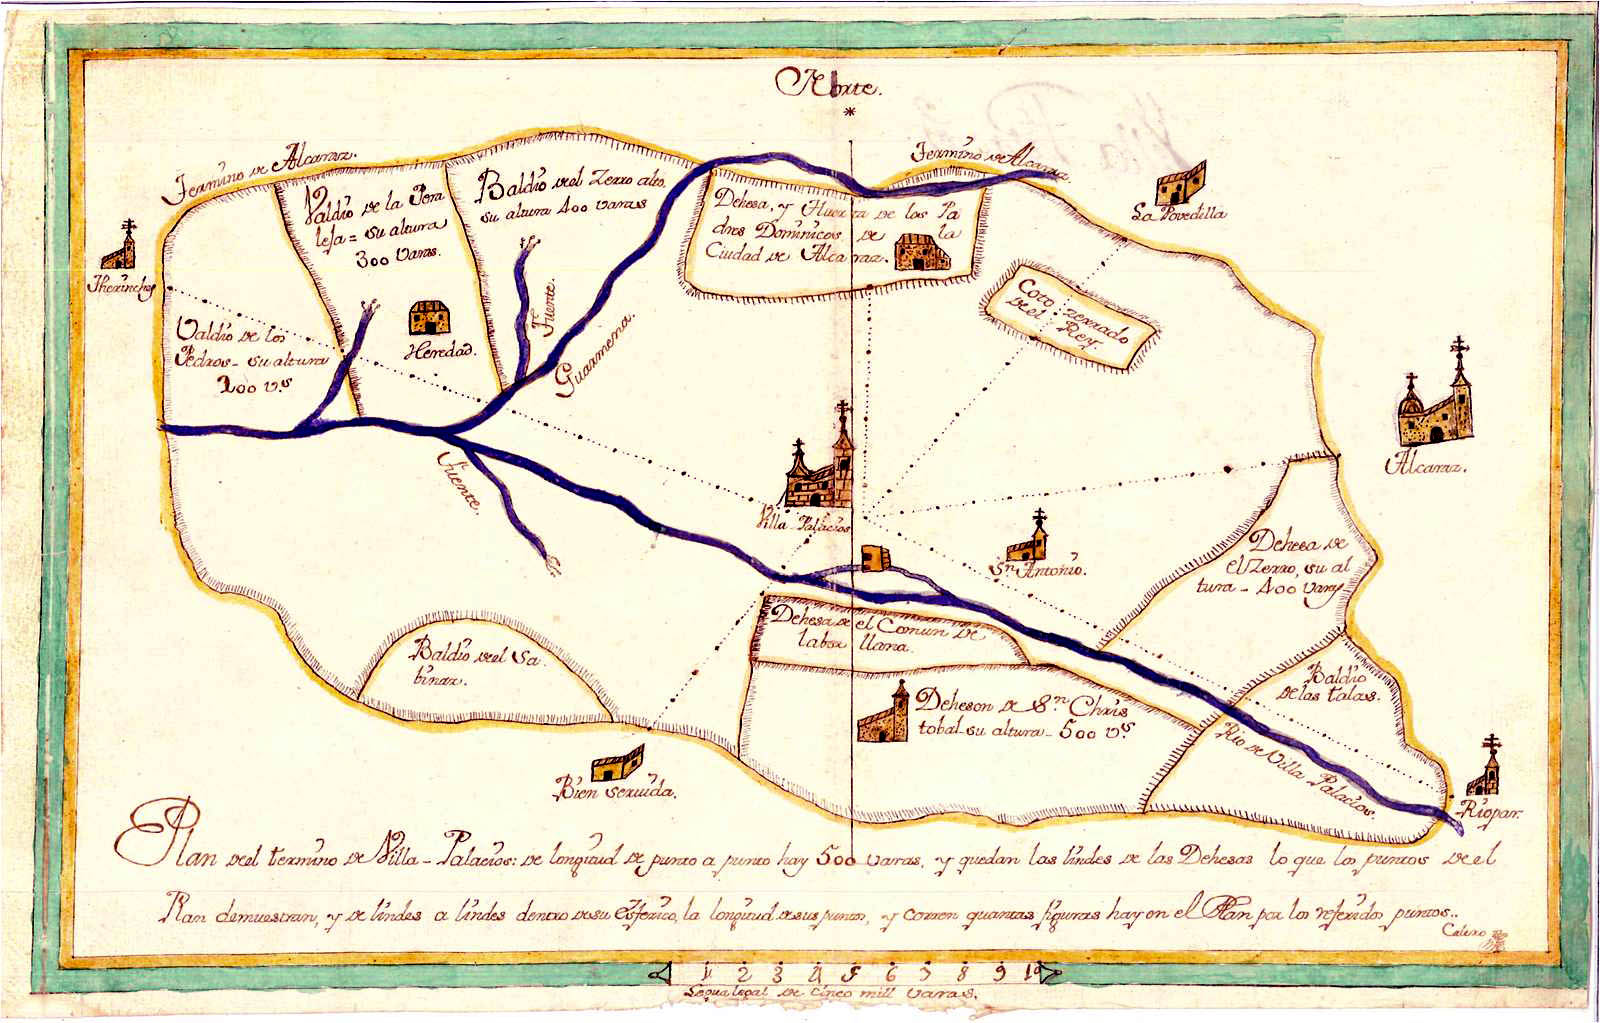 Norte.
Termino de Alcaraz.
Termino de Alcaraz.
La Povedilla
Valdio de la Pera
lesa = su altura
300 varas.
Baldio de el zerro alto.
su altura 400 varas
Dehesa, y Huerta de los Pa
dres Dominicos de la
Ciudad de Alcaraz.
Coto zerrado
de el Rey.
Valdio de los
Pedros - su altura
200 v.s
Heredad.
Fuente.
Guarmena.
Alcaraz.
Fuente.
Villa-Palacios
Sn. Antonio.
Dehesa de
el Zerro, su al
tura - 400 varas
Dehesa de el Comun de
labor llana.
Baldio de el Sa.
binar.
Baldio
de las talas.
Deheson de Sn. Chris
tobal su altura - 500 v.s
Rio de Villa Palacios.
Bien servida.
Riopar.
Plan de el termino de Villa-Palacios: de longitud de punto a punto hay 500 varas, y quedan las lindes de las Dehesas lo que los puntos de el
Plan demuestran, y de lindes a lindes dentro de su Esferico, la longitud de sus puntos, y corren quantas figuras hay en el Plan por los referidos puntos..
Calero
1 2 3 4 5 6 7 8 9 10
Legua legal de cinco mill varas.